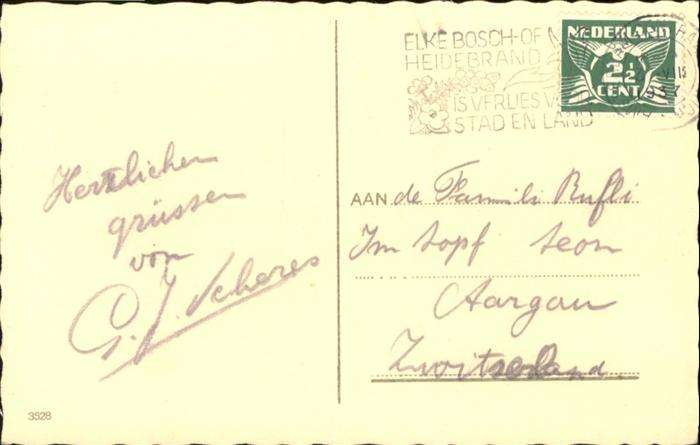 ELKE BOSCH-OF
HEIDEBRAND
IS VERLIES V
STAD EN LAND
NEDERLAND
2½
CENT
Herzlichen
grüssen
von
G. J. Scheres
AAN de Famili Rufli
Im topf Seon
Aargau
Zwitserland.
3528